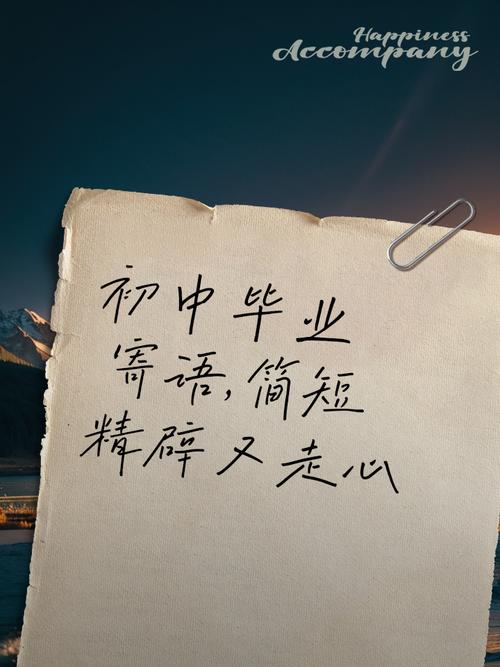 Happiness
Accompany
初中毕业
寄语,简短
精辟又走心